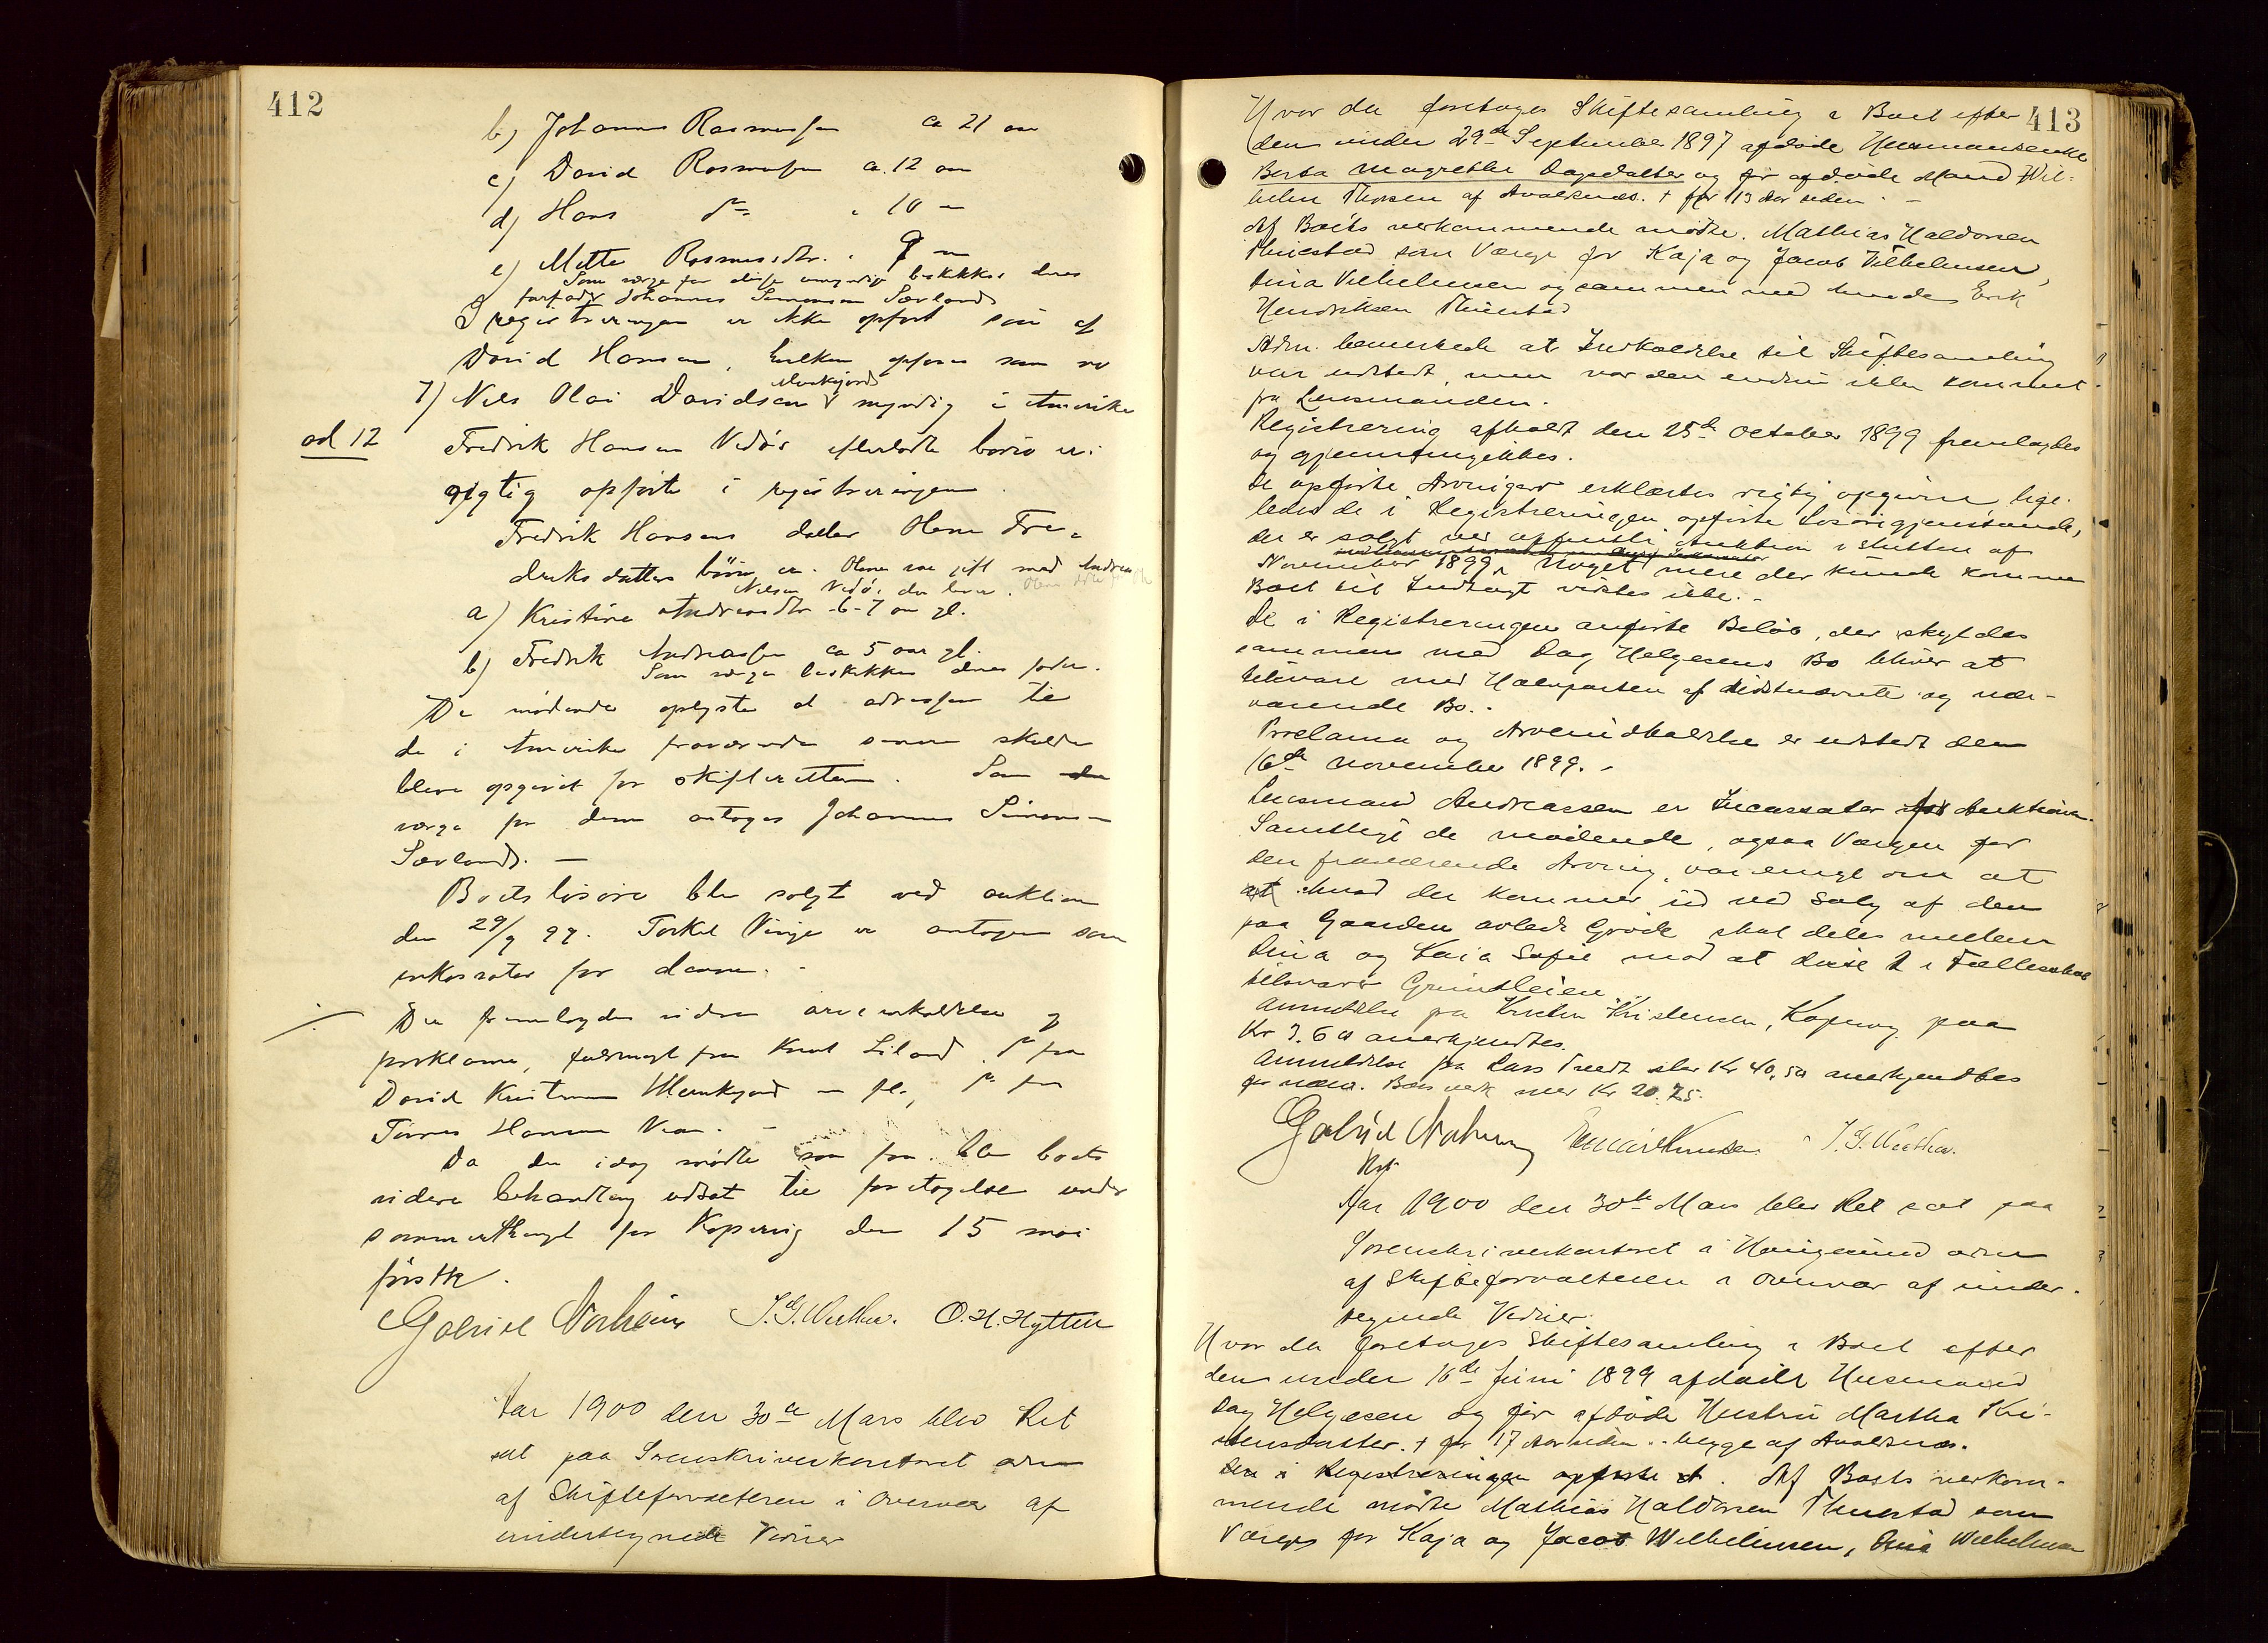 412
b) Johannes Rasmussen ca 21 aar
c) David Rasmussen ca. 12 aar
d) Hans do " 10 —
e) Mette Rasmusdtr. " 9 —
Som værge for disse umyndige beskikkes deres
farfader Johannes Simonsen Sævlands
I registreringen er ikke opført søn af
David Hansen, hvilken opføres som no
7) Nils Olai Davidsen Munkejords myndig i Amerika
ad 12 Fredrik Hansen Vedøs efterladte børn er
rigtig opførte i registreringen.
Fredrik Hansens datter Olene Fre-
driksdatters børn er. Olene var gift med Andreas
Nilsen Vedø, der lever.
a) Kristine Andreasdtr. 6-7 aar gl.
b) Fredrik Andreassen ca 5 aar gl.
Som værge beskikkes deres fader.
De mødende oplyste at adressen til
de i Amerika fraværende sønner skulde
blive opgivet for skifteretten. Som
værge for dem antoges Johannes Simons-
Sævlands. —
Boets løsøre blev solgt ved auktion
den 29/9 99. Torkel Vinje er antagen som
inkassator for denne. -
Der fremlagdes videre arveindkaldelse og
proklama, fuldmagt fra Knut Liland, do fra
David Kristensen Munkejord, do fra
Tønnes Hansen
Da der idag mødte saa faa blev boets
videre behandling udsat til foretagelse under
sommerthinget for Kopervig den 15 mai
førstk.
Gabriel Norheim J. G. Wathne. O. H. Hytten
Aar 1900 den 30te Mars blev Ret
sat paa Sorenskriverkontoret adm
af Skifteforvalteren i Overvær af
undertegnede Vidner
413
Hvor da foretoges Skiftesamling i Boet efter
den under 29de September 1897 afdøde Husmandsenke
Berta Magrethe Dagsdatter og før afdøde Mand Wil-
helm Thorsen af Avaldsnæs. † for 13 Aar siden. —
Af Boets vedkommende mødte. Mathias Haldorsen
Thuestad som Værge for Kaja og Jacob Vilhelmsen,
Dina Vilhelmsen og sammen med hendes Erik
Hendriksen Thuestad
Adm. bemerkede at Indkaldelse til Skiftesamling
var udstedt, men var den endnu ikke kommet
fra Lensmanden.
Registrering afholdt den 25de October 1899 fremlagdes
og gjennemgikkes.
De opførte Arvinger erklærtes rigtig opgivne lige-
ledes de i Registreringen opførte Løsøregjenstande,
der er solgt ved offentlig Auktion i Slutten af
November 1899. Noget mere der kunde komme
Boet til Indtægt vistes ikke. -
De i Registreringen anførte Beløb, der skyldes
sammen med Dag Helgesens Bo bliver at
tilsvare med Halvparten af sidstnævnte og nær-
værende Bo. -
Proclama og Arveindkaldelse er udstedt den
16de November 1899. -
Lensmand Andreassen er Incassator for Auktionen.
Samtlige de mødende, ogsaa Værgen for
den fraværende Arving, var enige om at
hvad der kommer ind ved Salg af den
paa Gaarden avlede Grøde skal deles mellem
Dina og Kaja Sofie mod at disse 2 i Fællesskab
tilsvarer Grundleien.
Anmeldelse fra Kristen Kristensen, Kopervig paa
Kr 9.60 anerkjendtes.
Anmeldelse fra Lars Tvedt stor Kr 40,50 anerkjendtes
for nærv. Bos vedk. med Kr 20.25.
Gabriel Norheim Knudsen J. G. Wathne.
Aar 1900 den 30te Mars blev Ret sat paa
Sorenskriverkontoret i Haugesund adm
af Skifteforvalteren i Overvær af under-
tegnede Vidner.
Hvor da foretoges Skiftesamling i Boet efter
den under 16de Juni 1899 afdøde Husmand
Dag Helgesen og før afdøde Hustru Martha Kri-
stensdatter. † for 17 Aar siden - begge af Avaldsnæs.
Den i Registreringen opførte A. Af Boets vedkom-
mende mødte Mathias Haldorsen Thuestad som
Værge for Kaja og Jacob Wilhelmsen, Dina Wilhelmsen